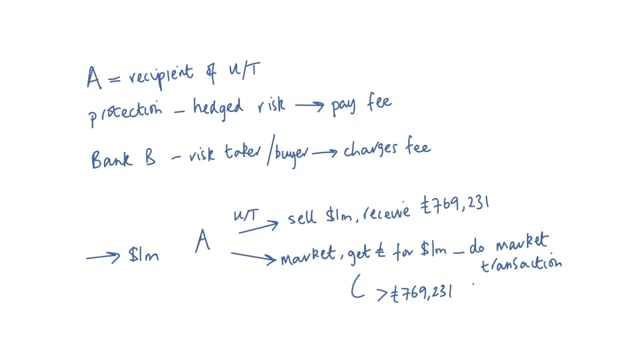 A = recipient of U/T
protection – hedged risk → pay fee
Bank B – risk taker/buyer → charges fee
U/T → sell $1m, receive £769,231
→ $1m A
→ market, get £ for $1m – do market
transaction
( > £769,231